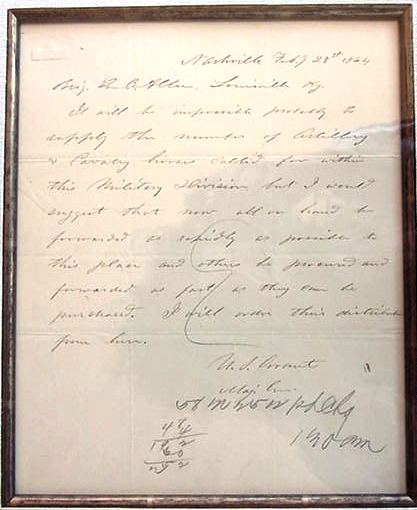 Nashville Feby 28th 1864
Brig. Gn. Allen, Louisville Ky.
It will be impossible probably to
supply the number of Artillery
& Cavalry horses called for within
this Military Division but I would
suggest that now all on hand be
forwarded as rapidly as possible to
this place and others be procured and
forwarded as fast as they can be
purchased. I will order their distribution
from here.
U. S. Grant
Maj. Gn.
44
60
252